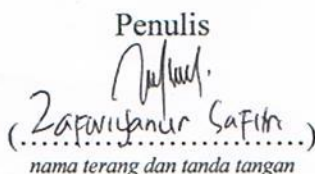 Penulis
(Zafariyanur Safitri)
nama terang dan tanda tangan